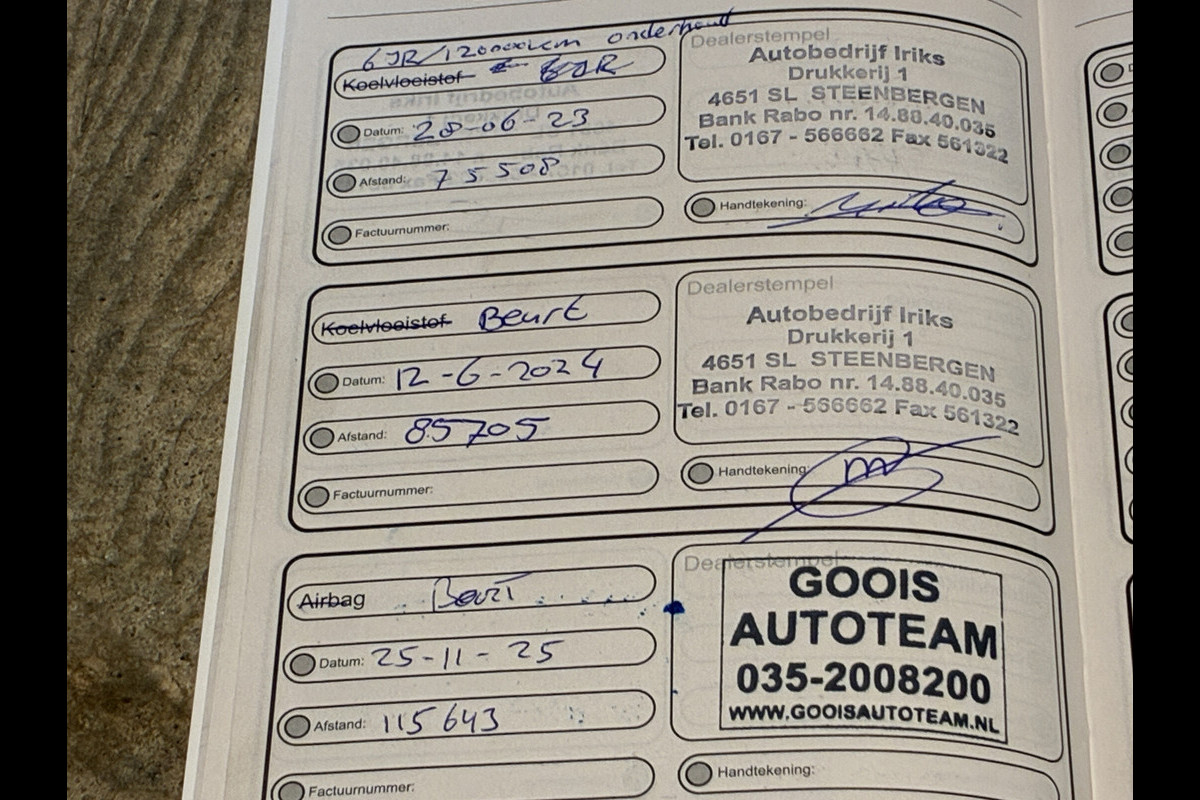 6 JR/120000km onderhoud
Koelvloeistof
Datum: 28-06-23
Afstand: 75508
Factuurnummer:
Dealerstempel
Autobedrijf Iriks
Drukkerij 1
4651 SL STEENBERGEN
Bank Rabo nr. 14.88.40.035
Tel. 0167 - 566662 Fax 561322
Handtekening:
Koelvloeistof Beurt
Datum: 12-6-2024
Afstand: 85705
Factuurnummer:
Dealerstempel
Autobedrijf Iriks
Drukkerij 1
4651 SL STEENBERGEN
Bank Rabo nr. 14.88.40.035
Tel. 0167 - 566662 Fax 561322
Handtekening:
Airbag Beurt
Datum: 25-11-25
Afstand: 115643
Factuurnummer:
Dealerstempel
GOOIS
AUTOTEAM
035-2008200
WWW.GOOISAUTOTEAM.NL
Handtekening: